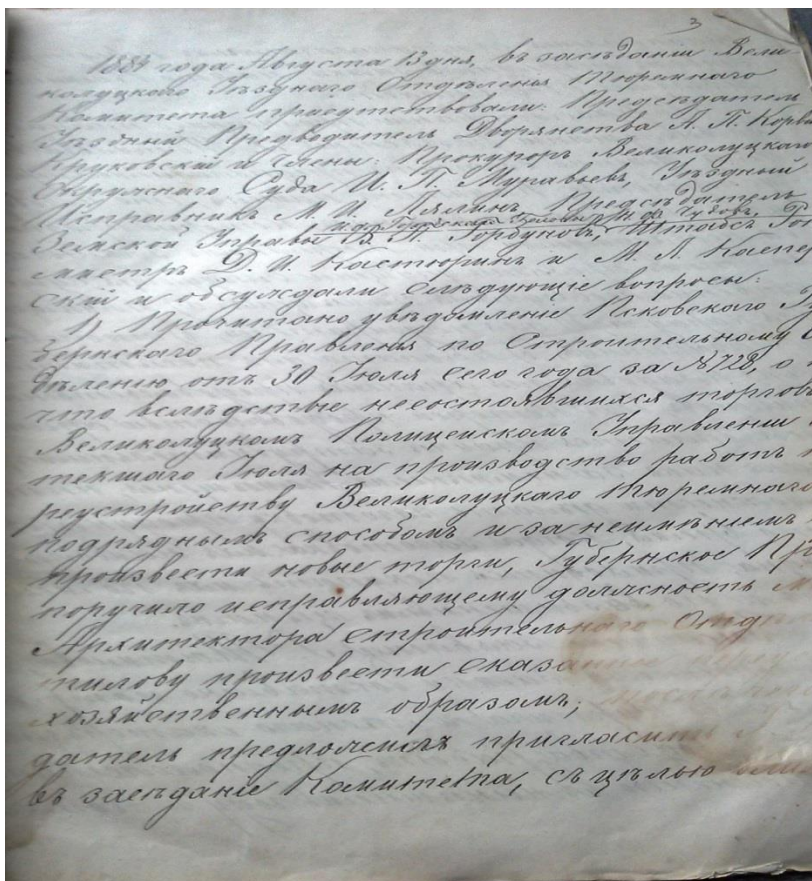 3
1884 года Августа 13 дня, въ засѣданіи Вели-
колуцкого Уѣзднаго Отдѣленія Тюремнаго
Комитета присутствовали: Предсѣдатель
Уѣздный Предводитель Дворянства А. П. Корвинъ
Круковскій и члены: Прокуроръ Великолуцкаго
Окружнаго Суда И. П. Муравьевъ, Уѣздный
Исправникъ М. И. Лялинъ, Предсѣдатель
и.д. Городскаго Головы
Земской Управы В. П. Горбуновъ, Штабсъ Рот
мистръ Д. И. Кастюринъ и М. Л. Каспер
скій и обсуждали слѣдующіе вопросы:
1) Прочитано увѣдомленіе Псковскаго Гу
бернскаго Правленія по Строительному
дѣленію отъ 30 Іюля сего года за № 728, о
что вслѣдствіе несостоявшихся торговъ
Великолуцкомъ Полицейскомъ Управленіи
текшаго Іюля на производство работъ
реустройству Великолуцкаго тюремнаго
подряднымъ способомъ и за неимѣніемъ
произвести новые торги, Губернское Пра
поручило исправляющему должность
Архитектора Строительнаго Отдѣ
тилову произвести
хозяйственнымъ образомъ;
датель предложилъ пригласить
въ засѣданіе Комитета, съ цѣлью